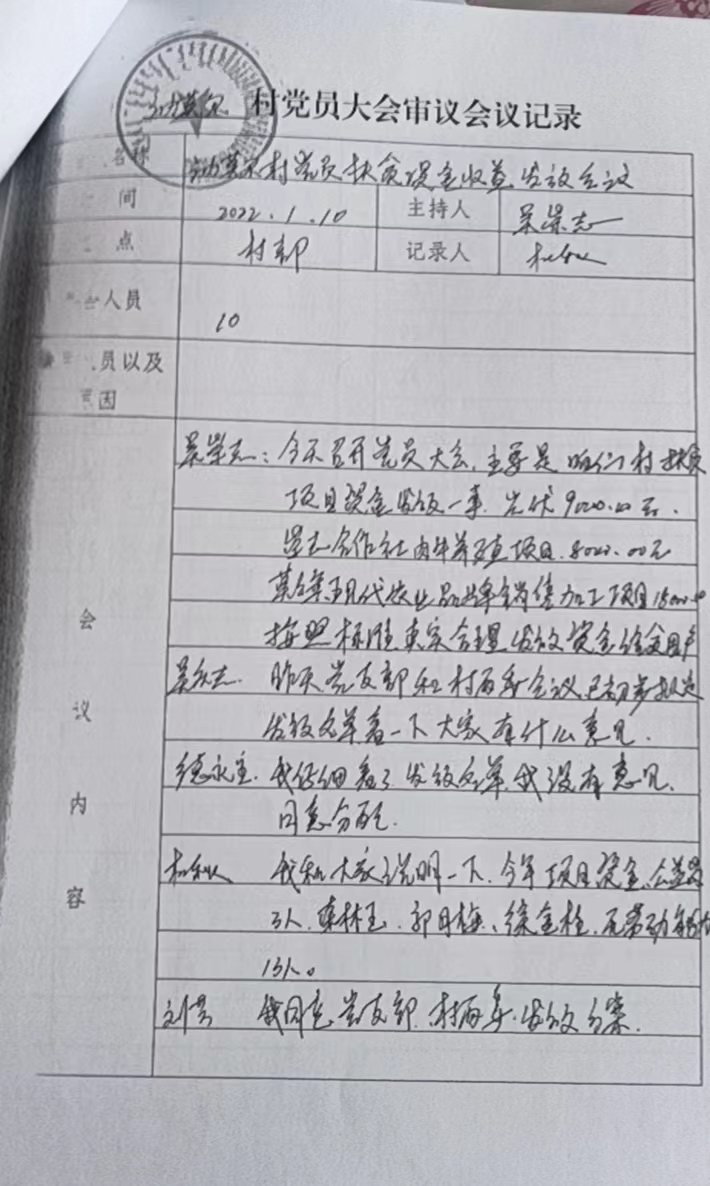 村党员大会审议会议记录
名称 村党员扶贫资金收益发放会议
间 2022.1.10 主持人
点 村部 记录人
人员 10
员以及
因
会议内容
今天召开党员大会,主要是咱们村扶贫
项目资金发放一事.光伏9000.00元.
合作社肉牛养殖项目.8000.00元
现代农业品牌销售加工项目
按照标准 合理发放资金
昨天党支部和村两委会议已初步拟定
发放名单看一下大家有什么意见.
德永 我仔细看了发放名单,我没有意见.
同意分配.
我和大家说明一下.今年项目资金,公益岗
3人. 郭月梅、徐金柱.无劳动
13人。
我同意党支部.村两委.发放方案.